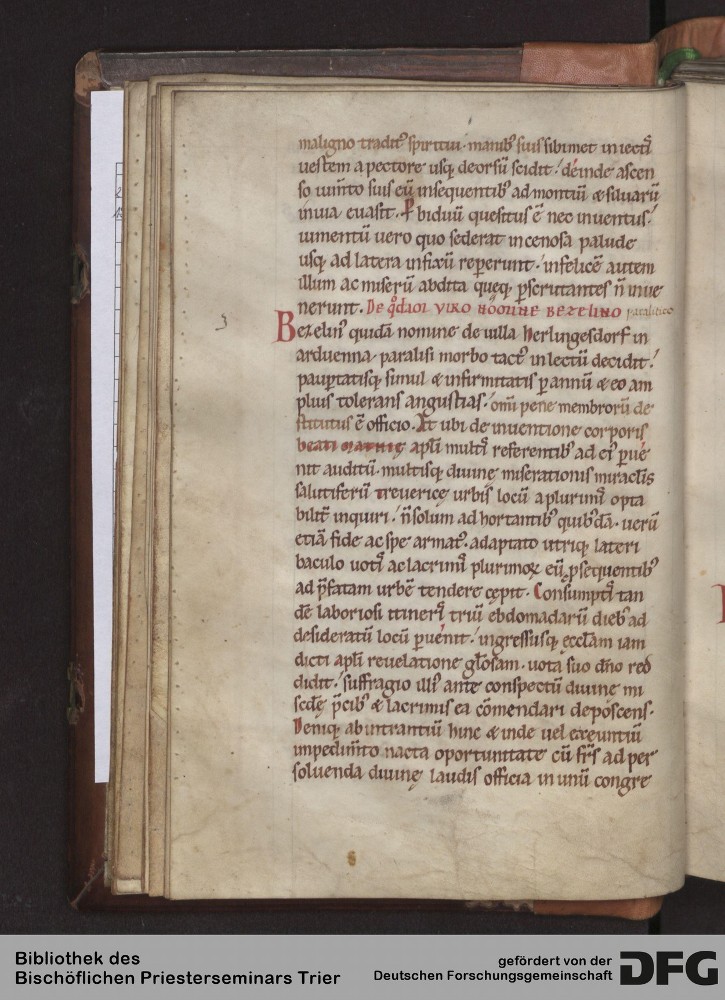 maligno tradit᷒ spiritui · manib᷒ suis sibimet iniectꝭ
uestem a pectore usq; deorsū scidit · deinde ascen
so ium̄to suis eū insequentib᷒ ad montiū & siluarū
inuia euasit · P biduū quesitus ē nec inuentus ·
iumentū uero quo sederat in cenosa palude
usq; ad latera infixū repperunt · infelicē autem
illum ac miserū abdita quęq; pscrutantes n̄ inue
nerunt. De qͦdam viro nomine Bezelino paralitico
Bezelin᷒ quidā nomine de uilla herlingesdorf in
arduenna · paralisi morbo tact᷒ in lectū decidit ·
paupertatisq; simul & infirmitatis p annū & eo am
plius tolerans angustias · omī pene membrorū de
stitutus ē officio. At ubi de inuentione corporis
beati mathię apli multꝭ referentib᷒ ad ei᷒ puē
nit auditū · multisq; diuinę miserationis miraclis
salutiferū treuericę urbis locū a plurimꝭ opta
bilit̄ inquiri · n̄ solum adhortantib᷒ quib᷒dā · uerū
etiā fide ac spe armat᷒ · adaptato utriq; lateri
baculo uotꝭ ac lacrimꝭ plurimox eū psequentib᷒
ad p̄fatam urbē tendere cępit. Consumptꝭ tan
dē laboriosi itinerꝭ triū ebdomadarū dieb᷒ ad
desideratū locū puenit · ingressusq; ecclam iam
dicti apli reuelatione glosam · uota suo dn̄o red
didit · suffragio illi᷒ ante conspectū diuine mi
scdę p̄cib᷒ & lacrimis ea cōmendari deposcens.
Deniq; ab intrantiū hinc & inde uel exeuntiū
impedim̄to nacta oportunitate cū frs̄ ad per
soluenda diuinę laudis officia in unū congre
Bibliothek des
Bischöflichen Priesterseminars Trier
gefördert von der
Deutschen Forschungsgemeinschaft
DFG